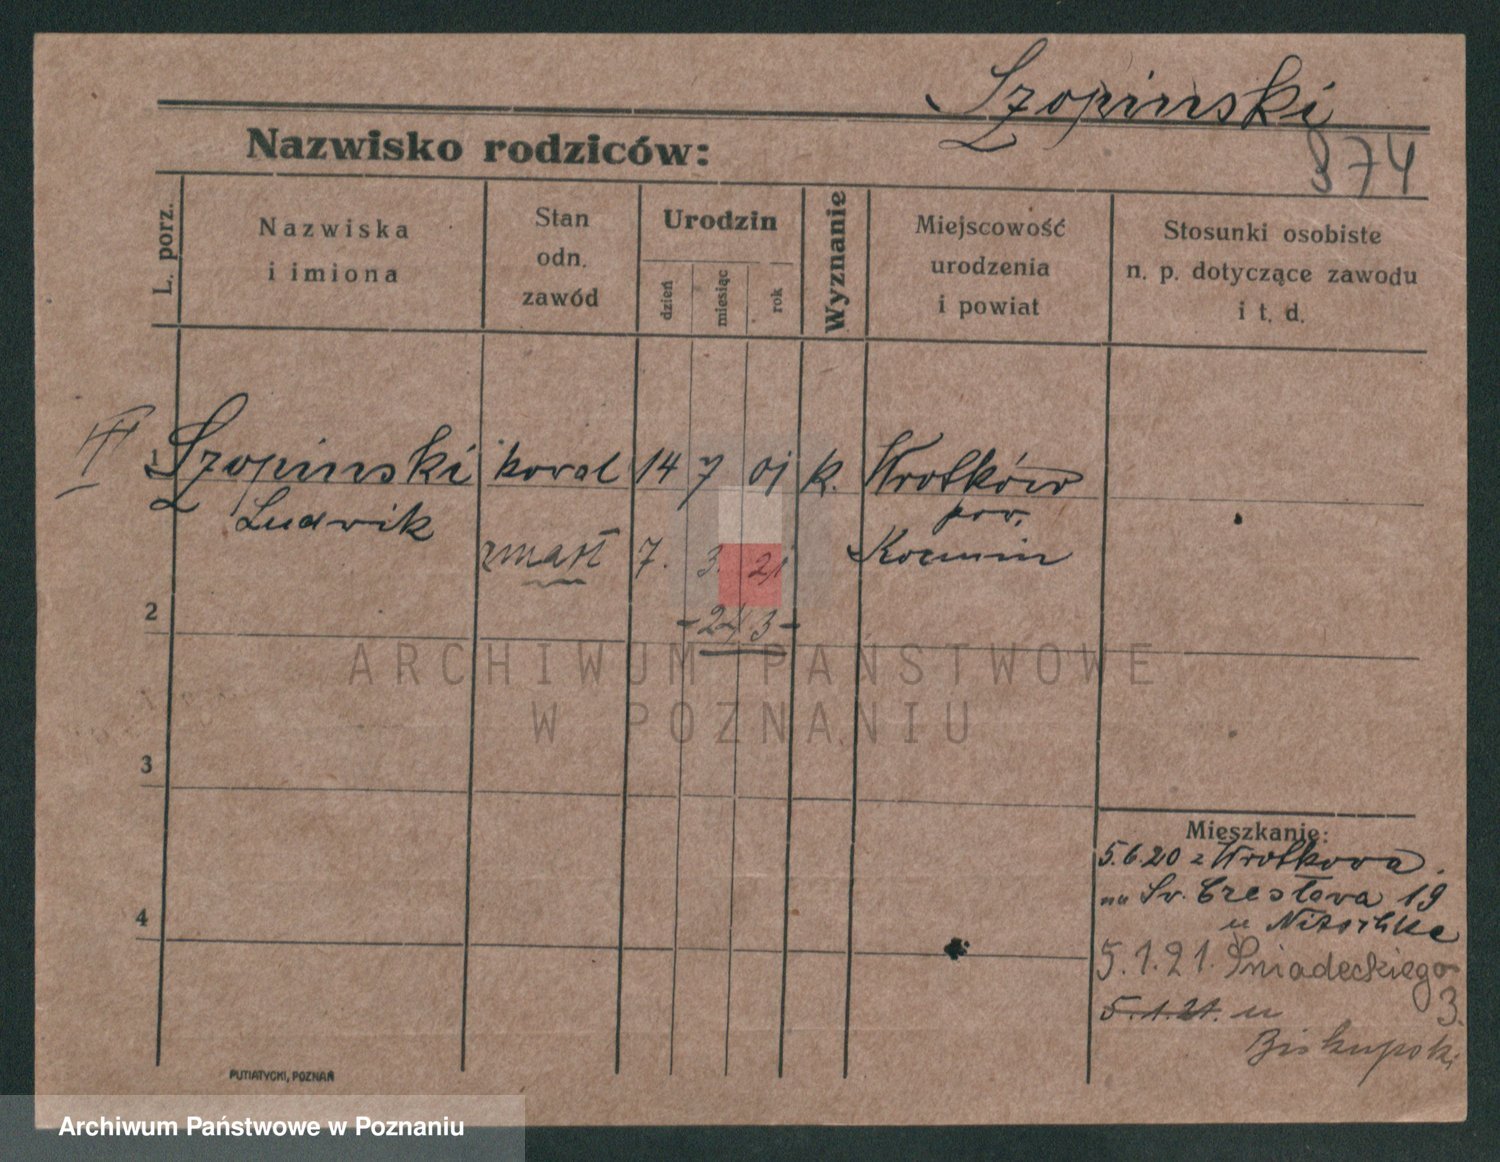 Szopinski
874
Nazwisko rodziców:
L. porz.
Nazwiska
i imiona
Stan
odn.
zawód
Urodzin
dzień
miesiąc
rok
Wyznanie
Miejscowość
urodzenia
i powiat
Stosunki osobiste
n. p. dotyczące zawodu
i t. d.
1 Szopinski koval 14 7 01 k. Wrotków
Ludvik pov.
zmarł 7. 3. 21 Kocmin
2
- 24/3 -
ARCHIWUM PAŃSTWOWE
W POZNANIU
3
4
Mieszkanie:
5.6.20 z Wrotkova.
na Sv. Czesłava 19
u Nitschke
5.1.21. Śniadeckiego
3.
5.1.21. u
Biskupski
PUTIATYCKI, POZNAŃ
Archiwum Państwowe w Poznaniu